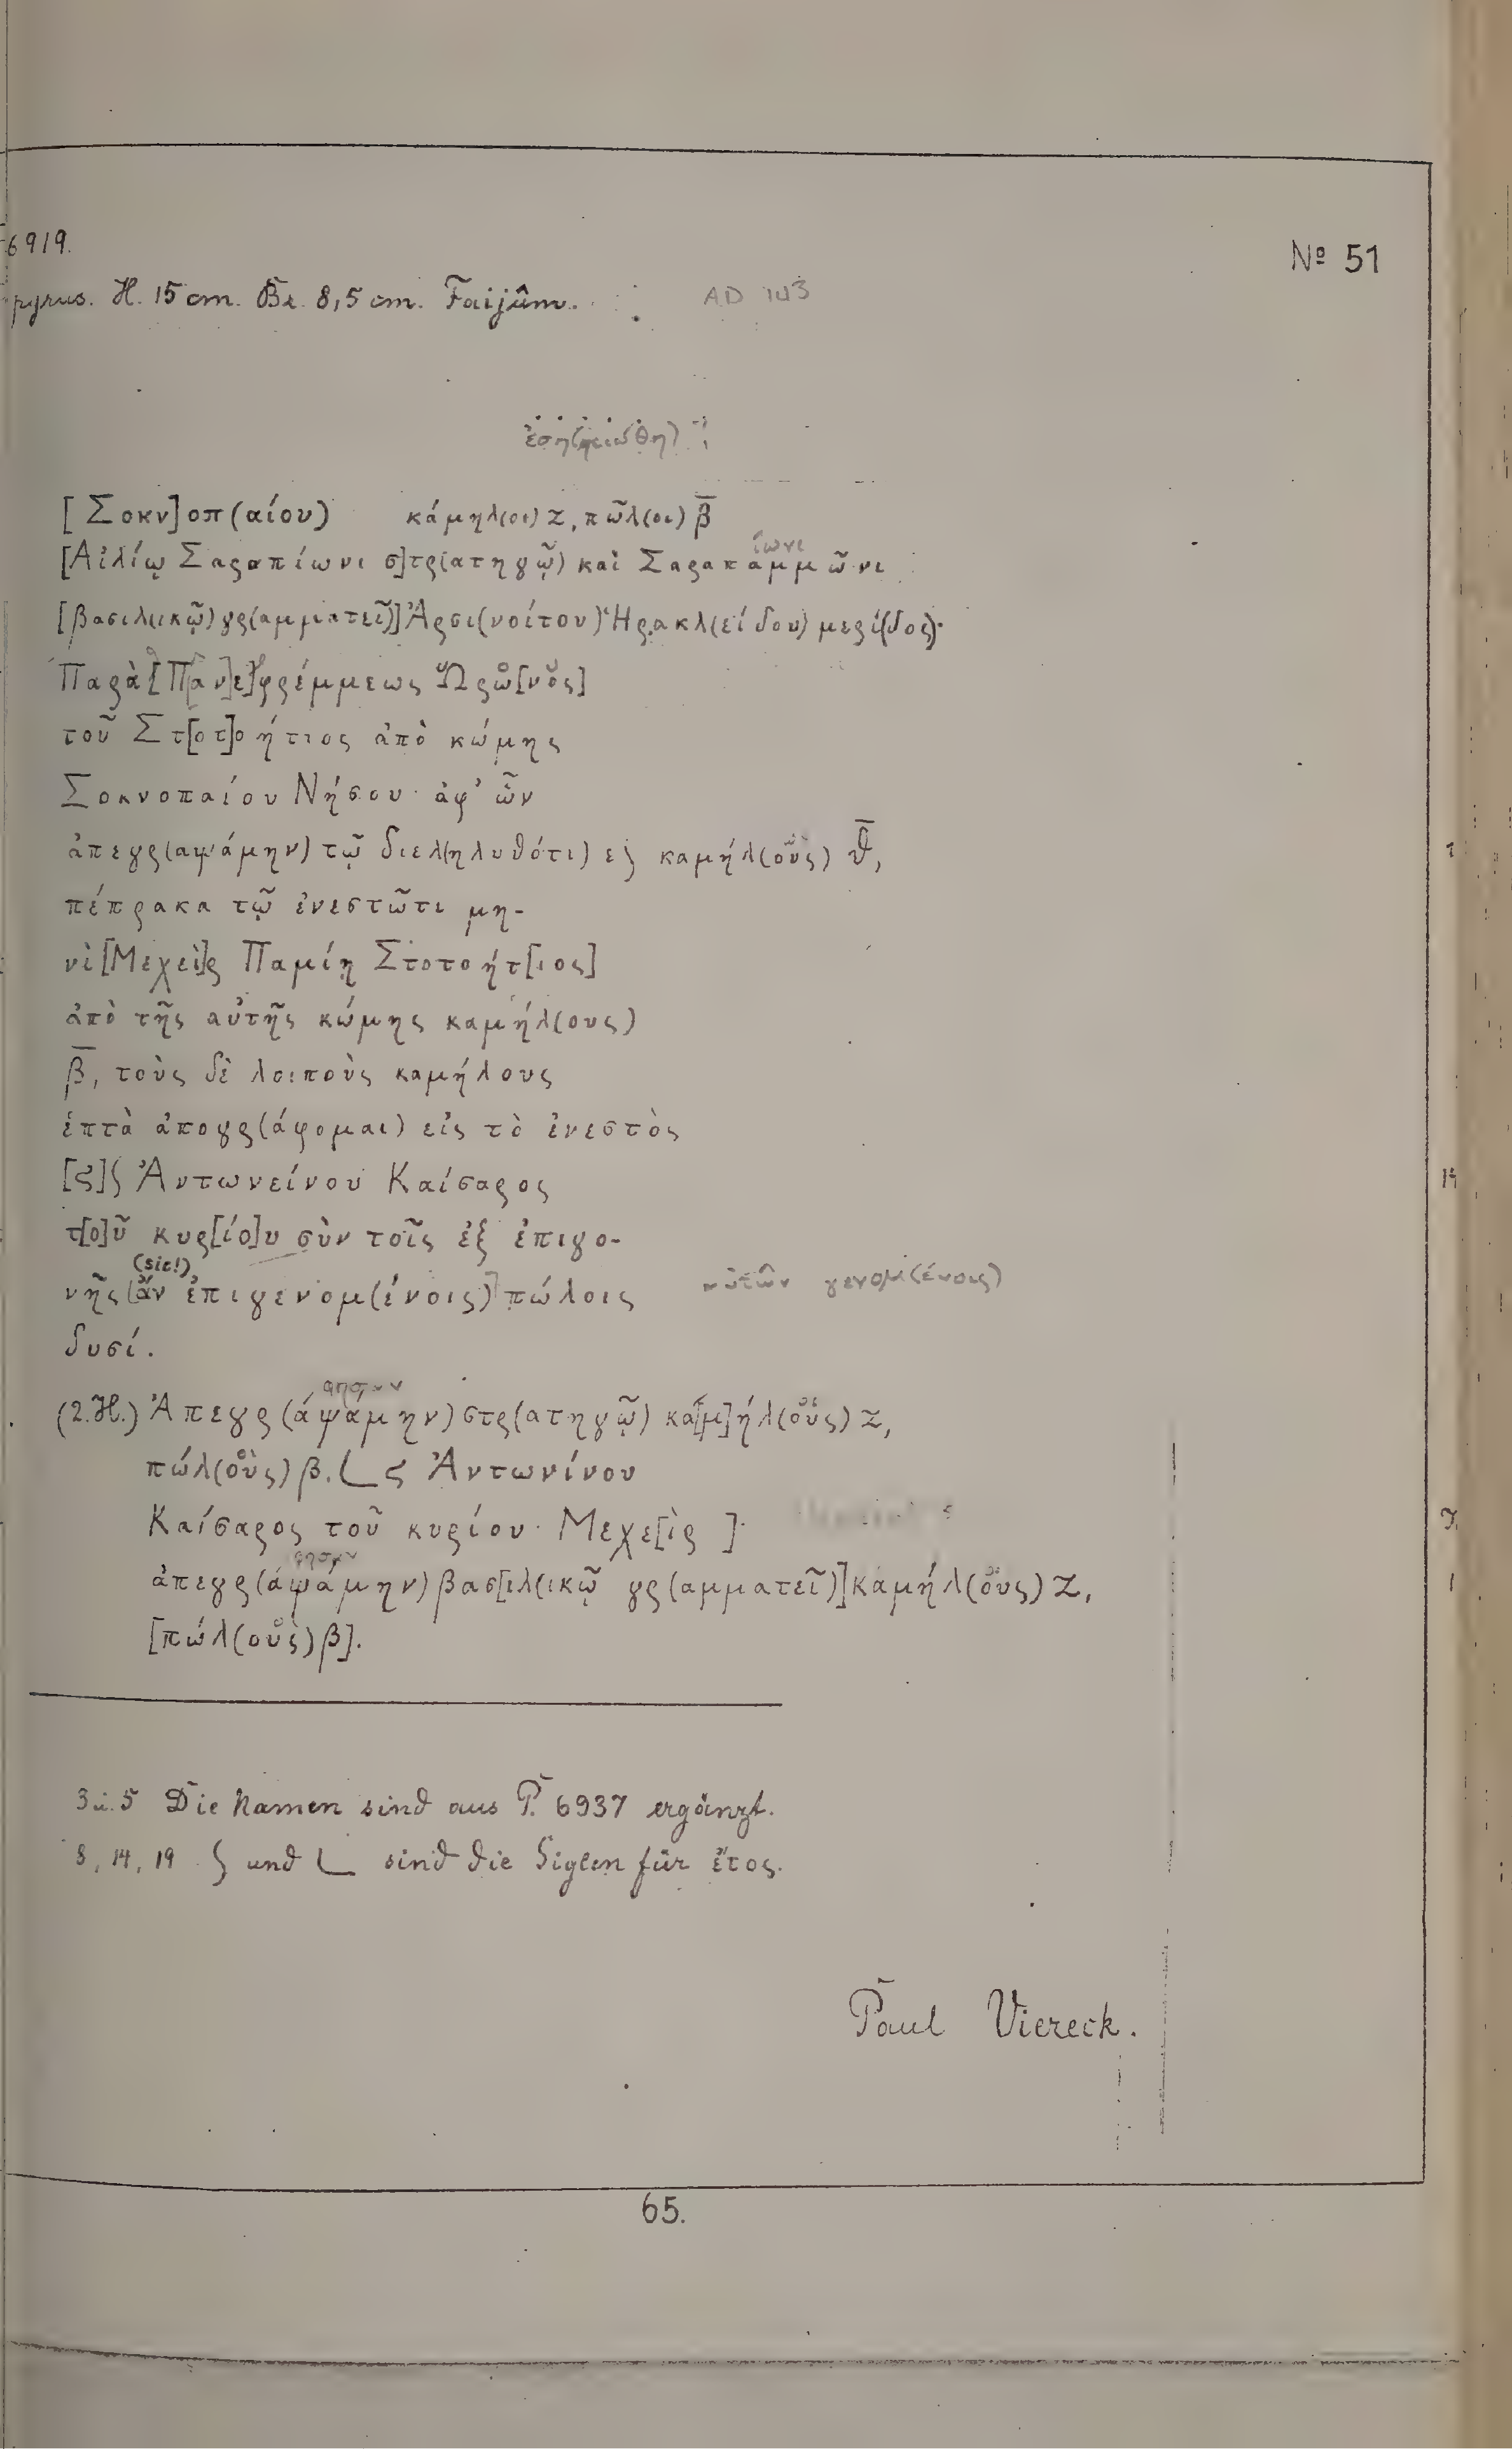 6919.
Nº 51
pyrus. H. 15 cm. Br. 8,5 cm. Faijûm.
AD 143
ἐση(μειώθη)
[Σοκν]οπ(αίου) κάμηλ(οι) ζ, πῶλ(οι) β̅
ίωνι
[Αἰλίῳ Σαραπίωνι σ]τρ(ατηγῷ) καὶ Σαραπάμμωνι
[βασιλ(ικῷ) γρ(αμματεῖ)] Ἀρσι(νοίτου) Ἡρακλ(είδου) μερί(δος)·
Παρὰ [Παν]ε[φρέμμεως Ὥρω[νος]
τοῦ Στ[οτ]οήτιος ἀπὸ κώμης
Σοκνοπαίου Νήσου· ἀφ' ὧν
ἀπεγρ(αψάμην) τῷ διελ(ηλυθότι) ε ∫ καμήλ(ους) θ̅,
πέπρακα τῷ ἐνεστῶτι μη-
νὶ [Μεχεὶ]ρ Παμίῃ Στοτοήτ[ιος]
ἀπὸ τῆς αὐτῆς κώμης καμήλ(ους)
β̅, τοὺς δὲ λοιποὺς καμήλους
ἑπτὰ ἀπογρ(άφομαι) εἰς τὸ ἐνεστὸς
[ϛ] ∫ Ἀντωνείνου Καίσαρος
τ[ο]ῦ κυρ[ίο]υ σὺν τοῖς ἐξ ἐπιγο-
(sic!)
νῆς (ἂν ἐπιγενομ(ένοις)] πώλοις
αὐτῶν γενομ(ένοις)
δυσί.
(2.H.) Ἀπεγρ(αψάμην) στρ(ατηγῷ) κα[μ]ήλ(ους) ζ,
πώλ(ους) β. L ϛ Ἀντωνίνου
Καίσαρος τοῦ κυρίου· Μεχε[ὶρ ]·
ἀπεγρ(αψάμην) βασ[ιλ(ικῷ) γρ(αμματεῖ)] καμήλ(ους) ζ,
[πώλ(ους) β].
3 u. 5 Die Namen sind aus P. 6937 ergänzt.
8, 14, 19 ∫ und L sind die Siglen für ἔτος.
Paul Viereck.
65.